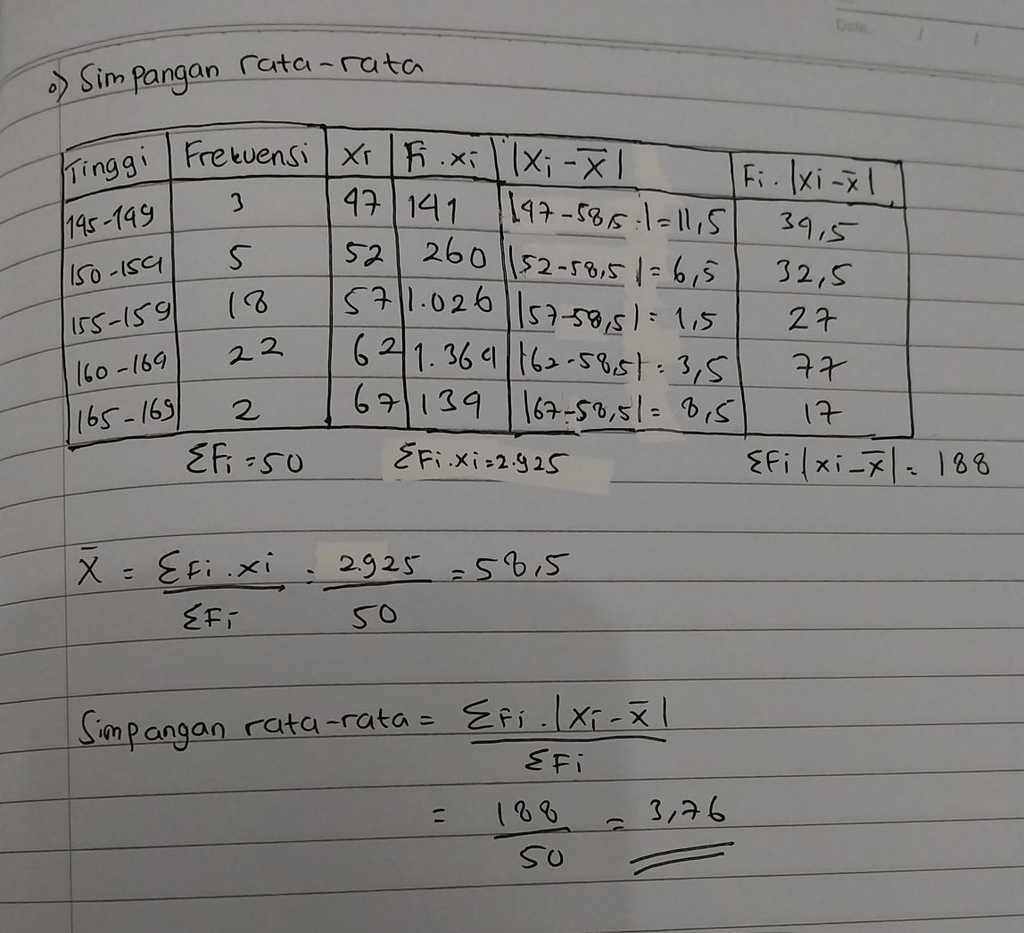 Date / /
o) Simpangan rata-rata
Tinggi Frekuensi Xi Fi . xi |Xi - X̄| Fi . |xi - x̄|
145-149 3 47 141 |47-58,5| = 11,5 39,5
150-154 5 52 260 |52-58,5| = 6,5 32,5
155-159 18 57 1.026 |57-58,5| = 1,5 27
160-164 22 62 1.364 |62-58,5| = 3,5 77
165-169 2 67 139 |67-58,5| = 8,5 17
ΣFi = 50 ΣFi.xi = 2.925 ΣFi |xi - x̄| = 188
X̄ = ΣFi . xi = 2.925 = 58,5
ΣFi 50
Simpangan rata-rata = ΣFi . |Xi - x̄|
ΣFi
= 188 = 3,76
50